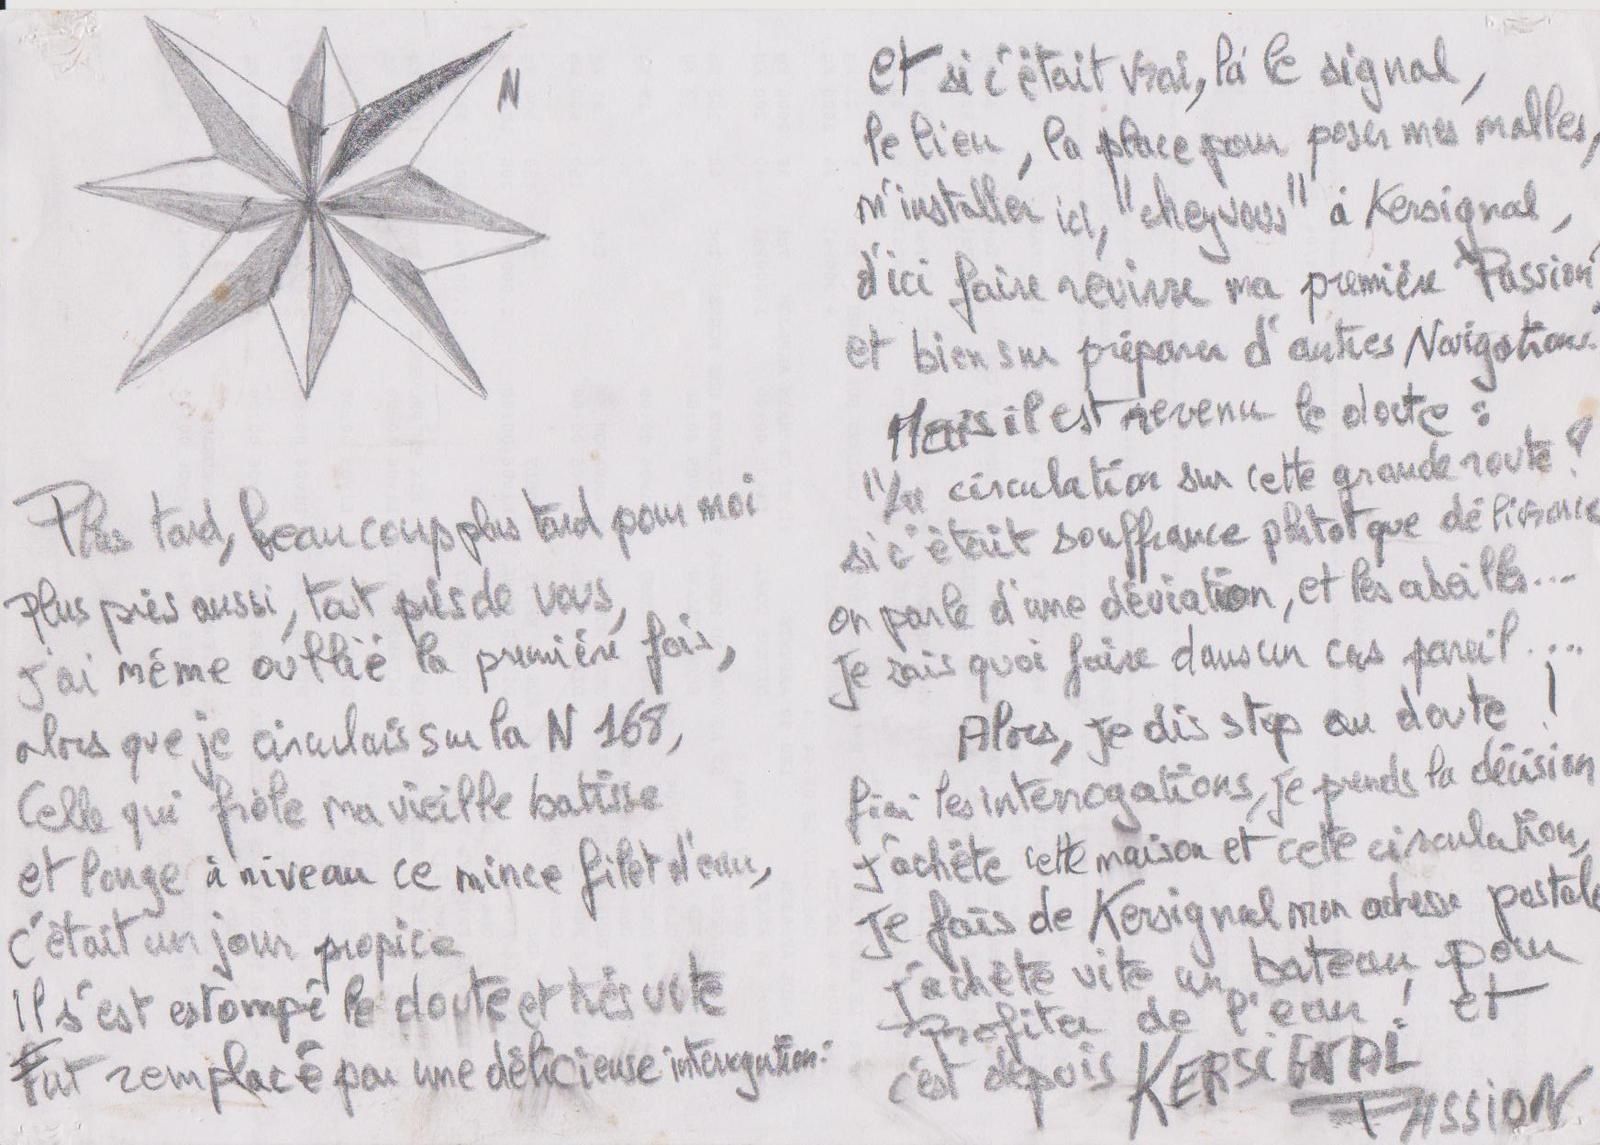 N
Plus tard, beaucoup plus tard pour moi
Plus près aussi, tout près de vous,
j'ai même oublié la première fois,
alors que je circulais sur la N 168,
Celle qui frôle ma vieille battisse
et longe à niveau ce mince filet d'eau,
C'était un jour propice
Il s'est estompé le doute et très vite
Fut remplacé par une délicieuse interrogation :
et si c'était vrai, là le signal,
le lieu, la place pour poser mes malles,
m'installer ici, "chez vous" à Kersignal,
d'ici faire revivre ma première "Passion"
et bien sur préparer d'autres Navigations.
Mais il est revenu le doute :
circulation sur cette grande route ?
si c'était souffrance plutot que délivrance
on parle d'une déviation, et les abeilles...
je sais quoi faire dans un cas pareil....
Alors, je dis stop au doute !
fini les interrogations, je prends la décision
J'achète cette maison et cette circulation,
je fais de Kersignal mon adresse postale
J'achète vite un bateau, pour
profiter de l'eau ! et
c'est depuis KERSIGNAL
PASSION